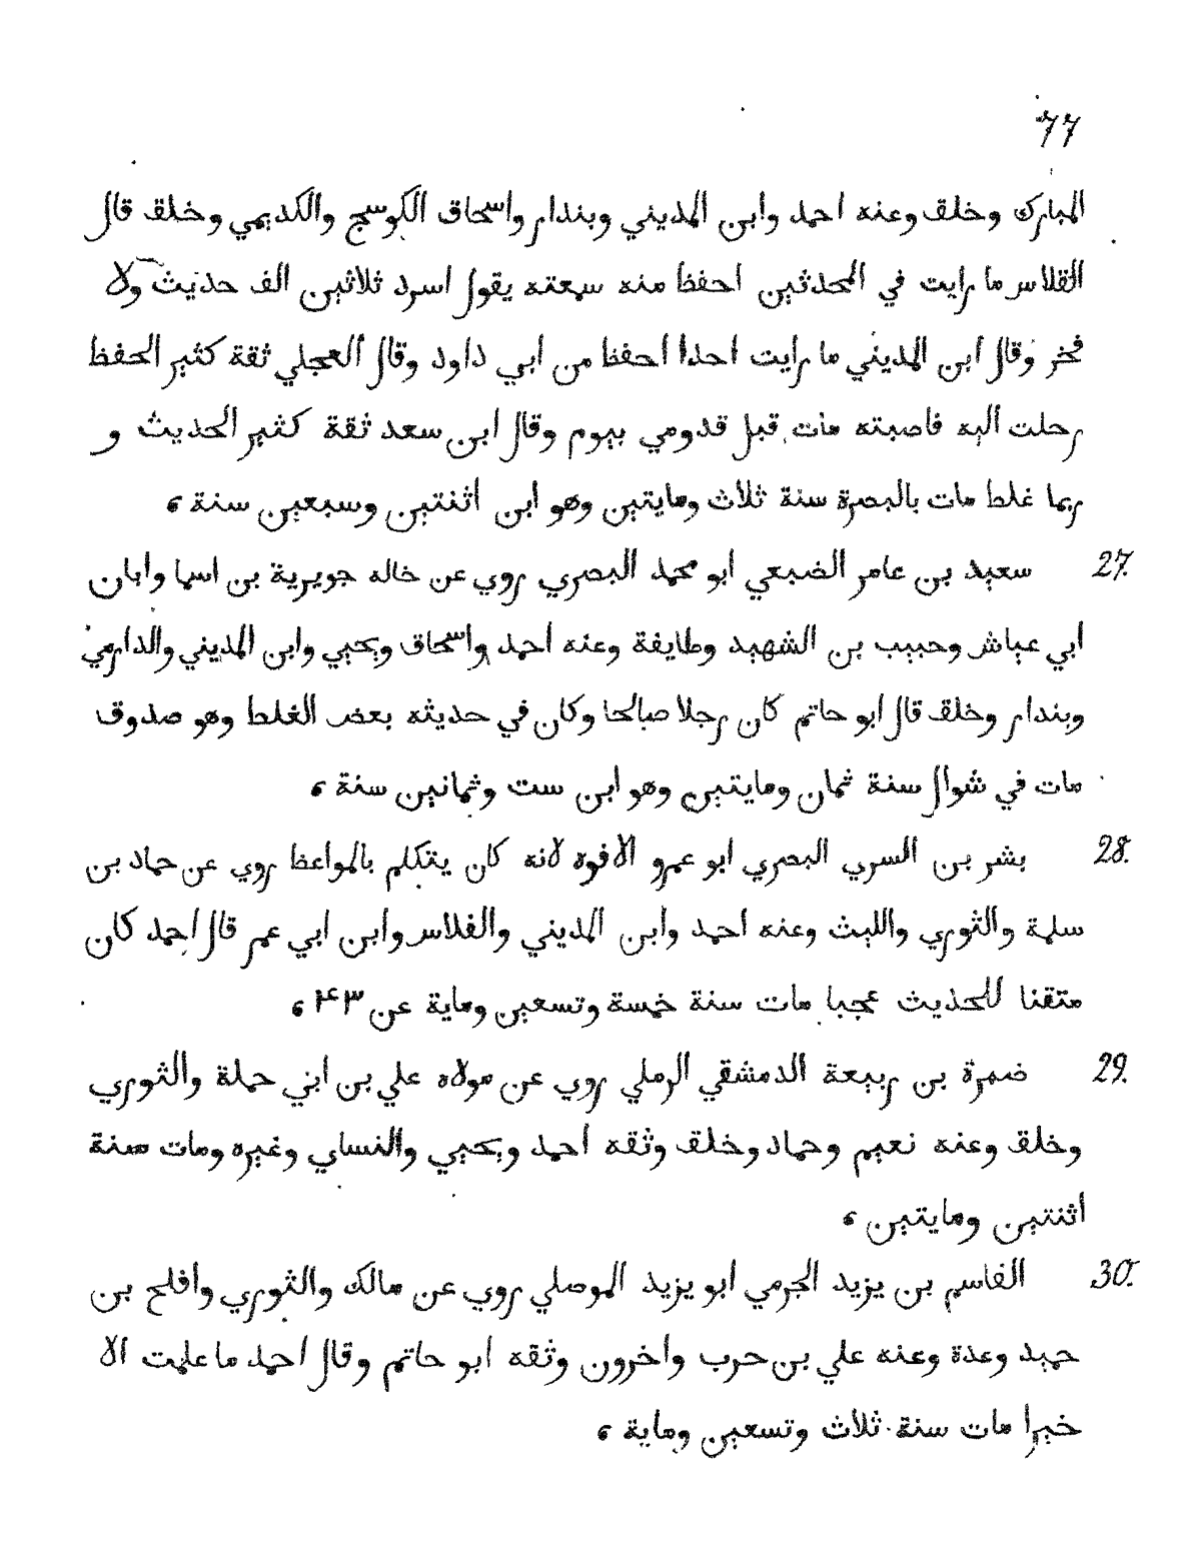 77
المبارك وخلق وعنه احمد وابن المديني وبندار واسحاق الكوسج والكديمي وخلق قال
القلاس ما رايت في المحدثين احفظ منه سمعته يقول اسرد ثلاثين الف حديث ولا
فخر وقال ابن المديني ما رايت احدا احفظ من ابي داود وقال العجلي ثقة كثير الحفظ
رحلت اليه فاصبته مات قبل قدومي بيوم وقال ابن سعد ثقة كثير الحديث و
ربما غلط مات بالبصرة سنة ثلاث ومايتين وهو ابن اثنتين وسبعين سنة ،
27. سعيد بن عامر الضبعي ابو محمد البصري روي عن خاله جويرية بن اسما وابان
ابي عياش وحبيب بن الشهيد وطايفة وعنه احمد واسحاق ويحيي وابن المديني والدارمي
وبندار وخلق قال ابو حاتم كان رجلا صالحا وكان في حديثه بعض الغلط وهو صدوق
مات في شوال سنة ثمان ومايتين وهو ابن ست وثمانين سنة ،
28. بشر بن السري البصري ابو عمرو الافوه لانه كان يتكلم بالمواعظ روي عن حماد بن
سلمة والثوري والليث وعنه احمد وابن المديني والفلاس وابن ابي عمر قال احمد كان
متقنا للحديث عجبا مات سنة خمسة وتسعين وماية عن ۴۳ ،
29. ضمرة بن ربيعة الدمشقي الرملي روي عن مولاه علي بن ابي حملة والثوري
وخلق وعنه نعيم وحماد وخلق وثقه احمد ويحيي والنساي وغيره ومات سنة
اثنتين ومايتين ،
30. القاسم بن يزيد الجرمي ابو يزيد الموصلي روي عن مالك والثوري وافلح بن
حميد وعدة وعنه علي بن حرب واخرون وثقه ابو حاتم وقال احمد ما علمت الا
خيرا مات سنة ثلاث وتسعين وماية ،